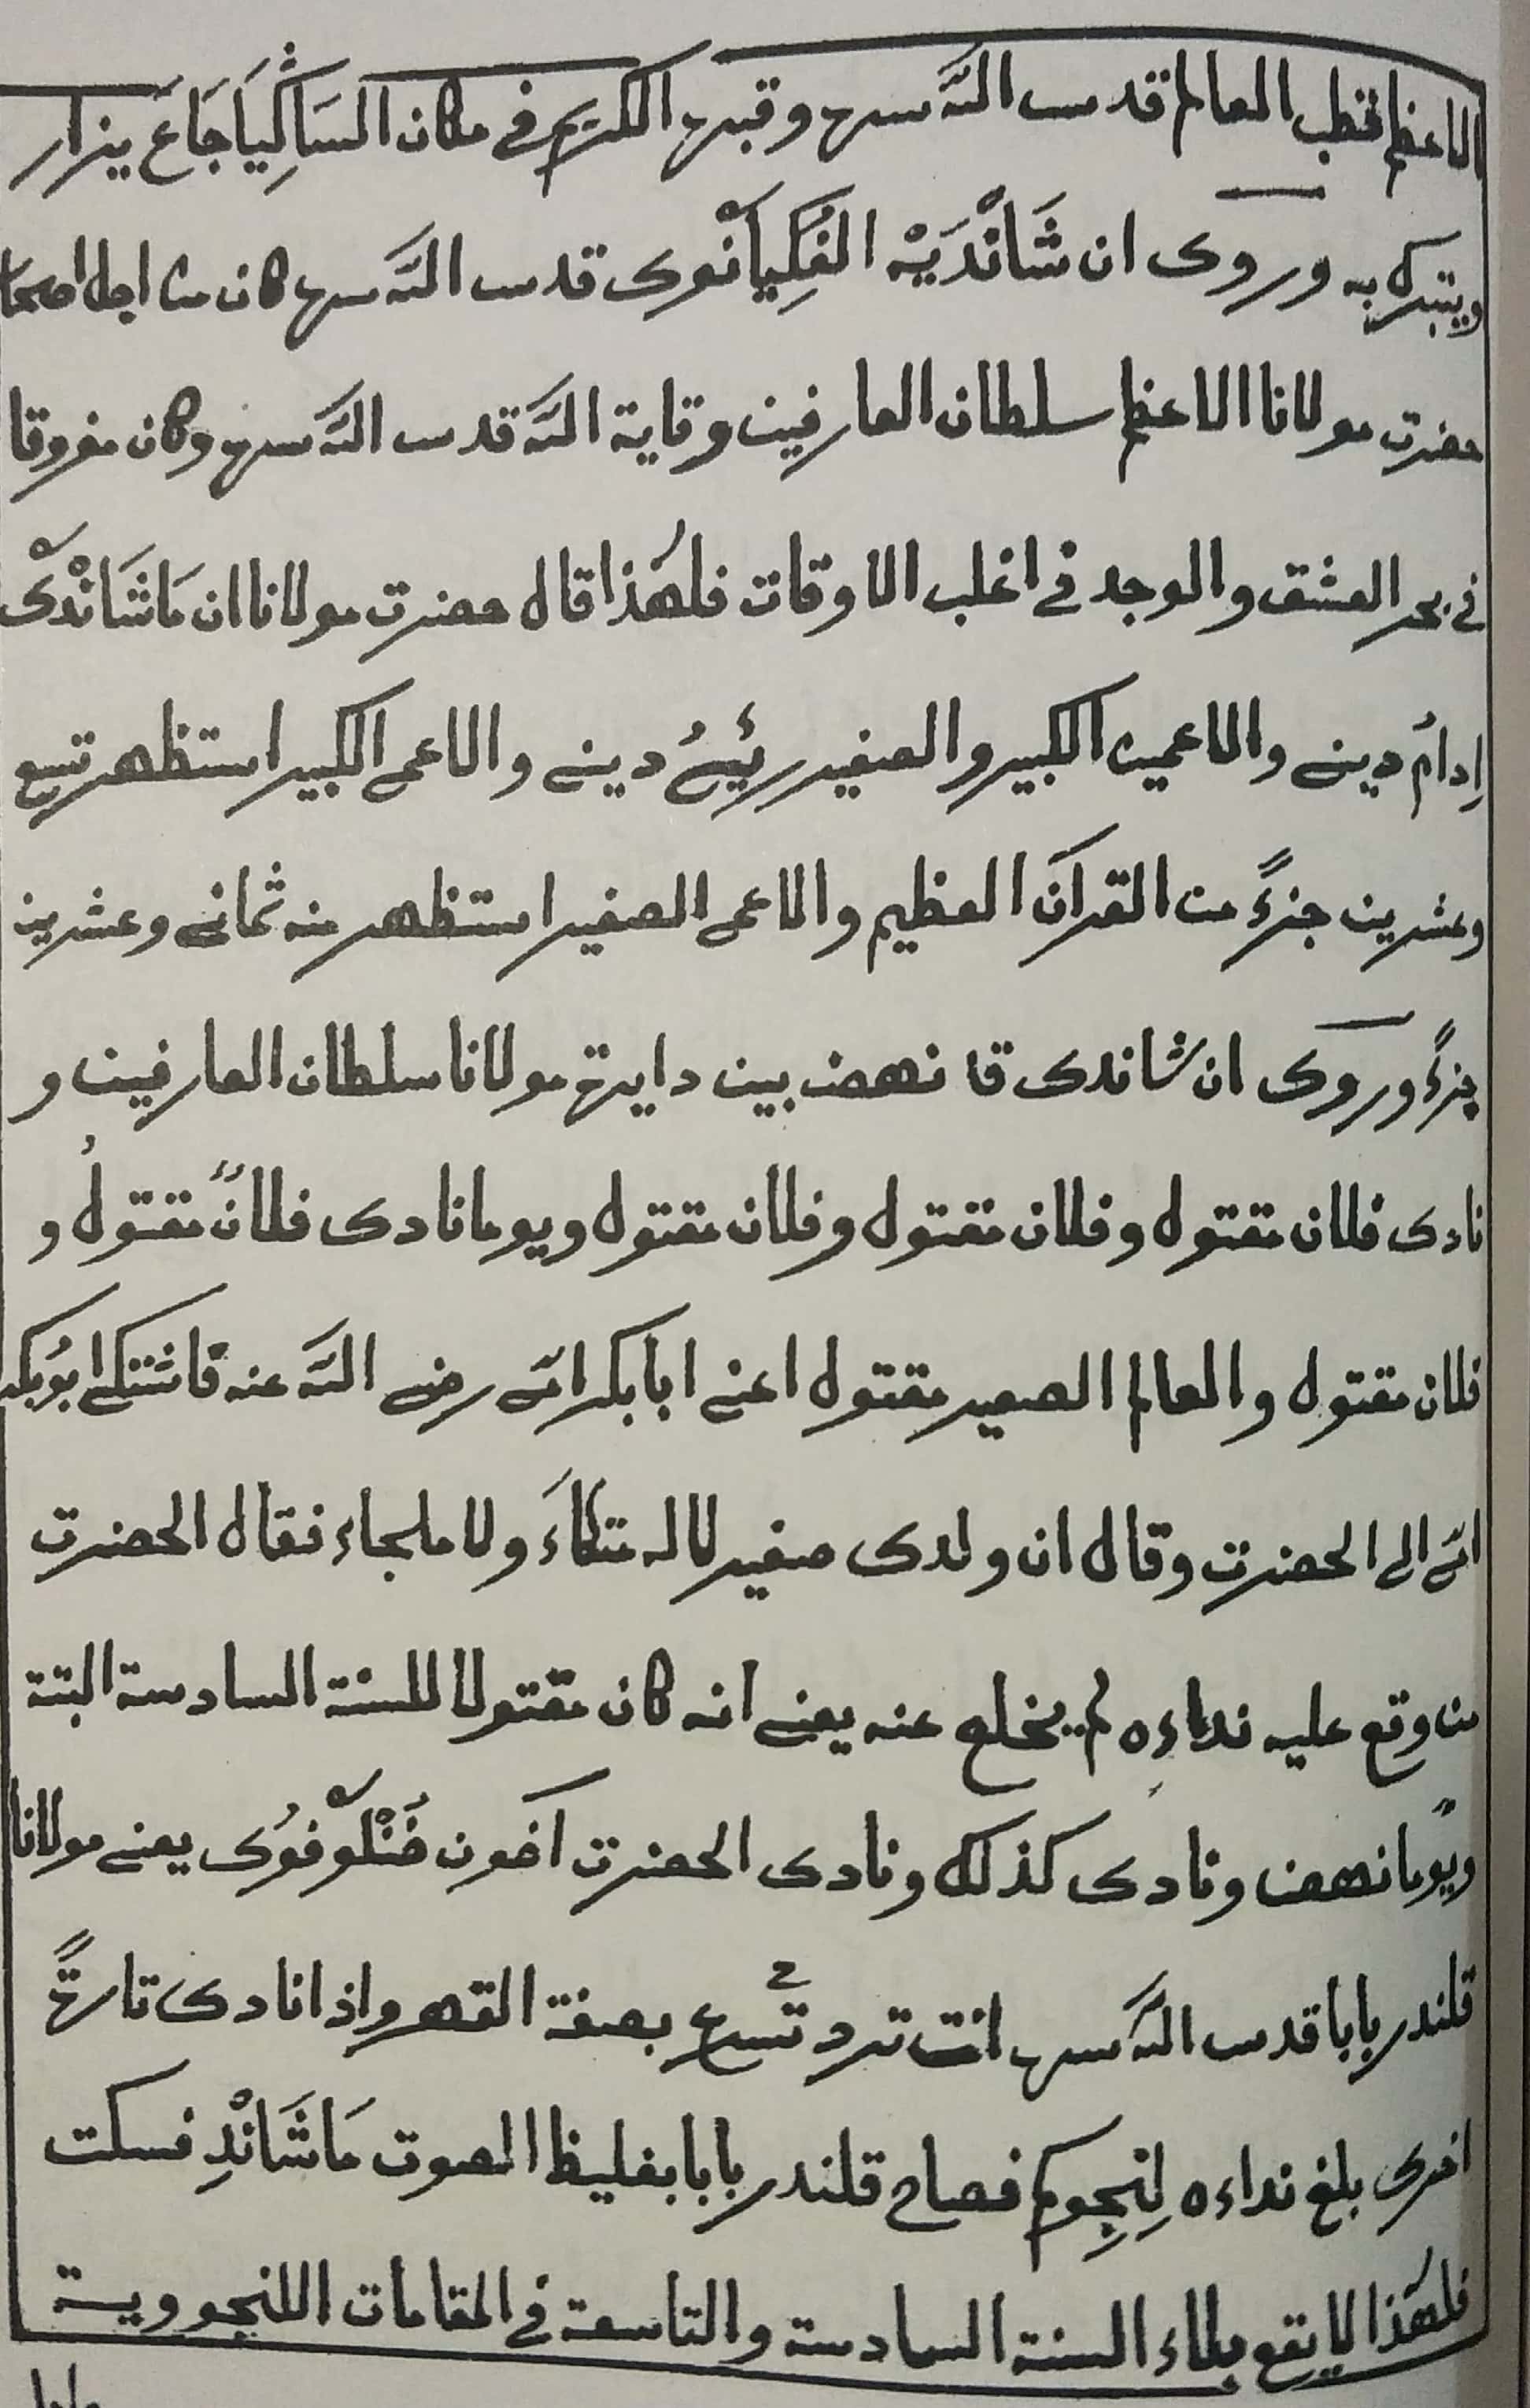 الاعظم قطب العالم قدس الله سره وقبره الكريم في مكان السَاكِيَاجَاعَ يزار
ويتبرك به وروى ان شَانْدَيَهْ الفُكِيَانْغوى قدس الله سره كان من اجل اصحاب
حضرت مولانا الاعظم سلطان العارفين وقاية الله قدس الله سره وكان مغروقا
في بحر العشق والوجد في اغلب الاوقات فلهٰذا قال حضرت مولانا ان مَاشَانْدىْ
اِدامُ ديني والاعميين الكبير والصغير رِئَيىُ ديني والاعمى الكبير استظهر تسع
وعشرين جزءً من القرآن العظيم والاعمى الصغير استظهر منه ثماني وعشرين
جزءً وروى ان شاندى قا نهض بين دايرة مولانا سلطان العارفين و
نادى فلان مقتول وفلان مقتول وفلان مقتول ويوما نادى فلانٌ مقتولٌ و
فلان مقتول والعالم الصغير مقتول اعني ابابكر رضي الله عنه فاشتكى ابوبكر
الى الحضرت وقال ان ولدى صغير لا له متكاءَ ولا ملجاء فقال الحضرت
من وقع عليه نداءه لم يخلع عنه يعني انه كان مقتولا للسنة السادسة البتة
ويومًا نهض ونادى كذلك ونادى الحضرت آخون فوُى يعني مولانا
قلندر بابا قدس الله سره انت ترد تسرع بصفة القهر واذا نادى تارةً
اخرى بلغ نداءه لِنجِوكم فصاح قلندر بابا بغليظ الصوت مَاشَانْدِ فسكت
فلهٰذا لايقع بلاء السنة السادسة والتاسعة في المقامات اللنجووية